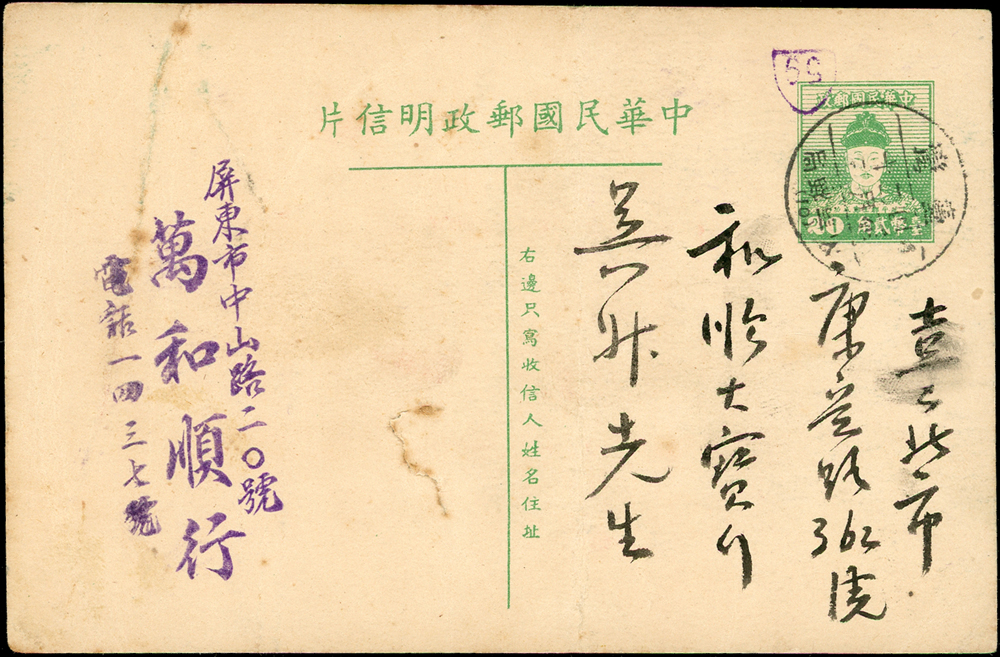 中華民國郵政明信片
59
中華民國郵政
20
臺幣貳角
臺北市
康定路362號
和順大寶行
吳升先生
右邊只寫收信人姓名住址
屏東市中山路二〇號
萬和順行
電話一四三七號